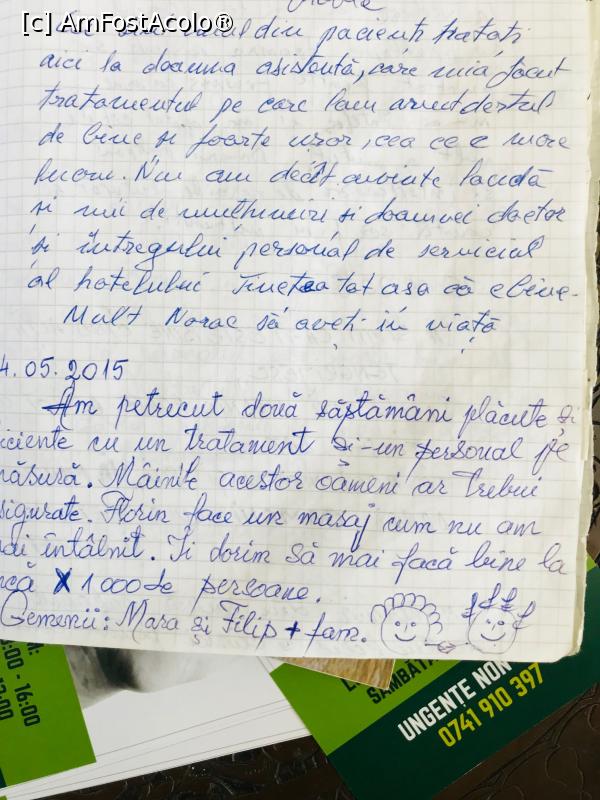 [c] AmFostAcolo®
din pacienți tratați
aici la doamna asistentă, care mia făcut
tratamentul pe care lam avut destul
de bine și foarte ușor, cea ce e mare
lucru. Nu am decît cuvinte laudă
și mii de mulțumiri și doamnei doctor
și întregului personal de serviciul
al hotelului Tinețea tot asa că e bine.
Mult Noroc să aveți in viață
4.05.2015
Am petrecut două săptămâni plăcute și
iciente cu un tratament și-un personal pe
măsură. Mâinile acestor oameni ar trebui
sigurate. Florin face un masaj cum nu am
ai întâlnit. Ii dorim să mai facă bine la
ncă x 1000 de persoane.
Gemenii: Mara și Filip + fam.
:00 - 16:00
SÂMBĂTA
URGENȚE NON
0741 910 397